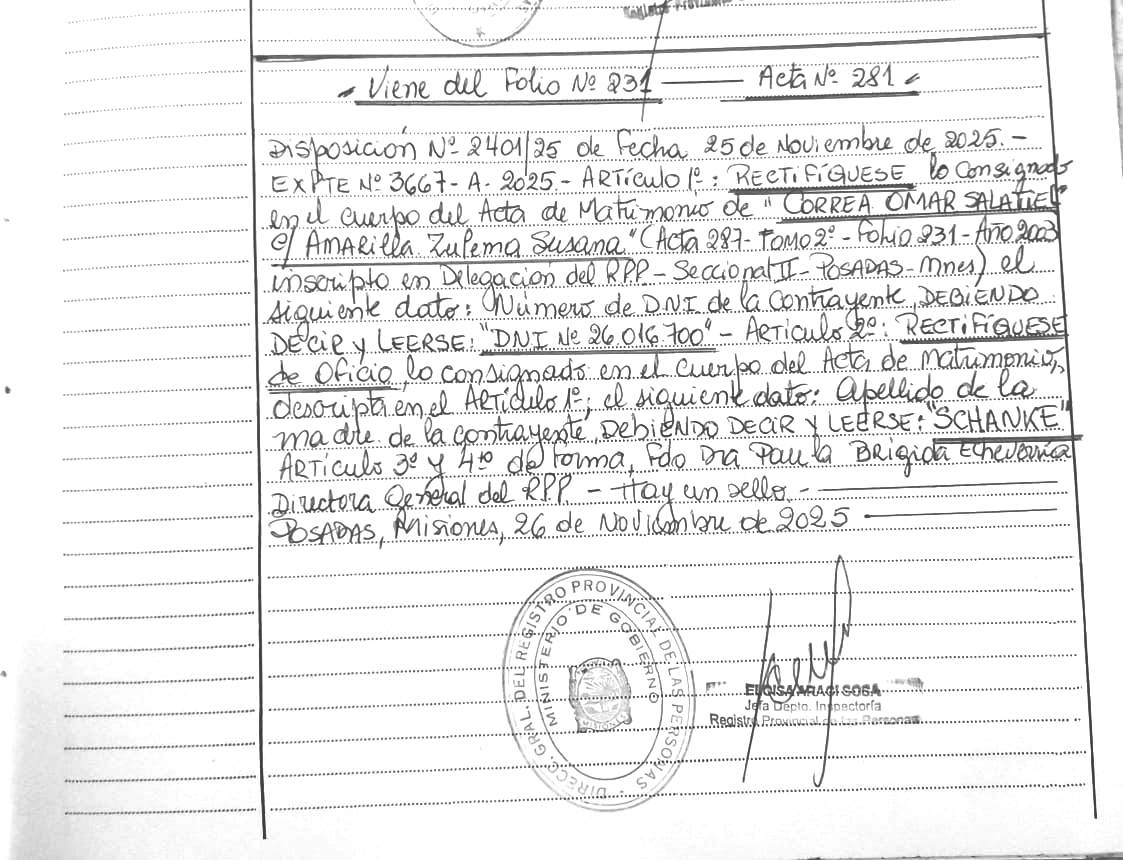 Viene del Folio Nº 231 ——— Acta Nº 281
Disposición Nº 2401/25 de Fecha 25 de Noviembre de 2025.-
EXPTE Nº 3667-A-2025- ARTÍCULO 1º: RECTIFÍQUESE lo consignado
en el cuerpo del Acta de Matrimonio de "CORREA OMAR SALATIEL
c/ AMARILLA Zulema Susana" (Acta 287- TOMO 2º- Folio 231- Año 2003
inscripto en Delegación del RPP- Seccional II- POSADAS- Mnes) el
siguiente dato: Número de DNI de la Contrayente, DEBIENDO
DECIR y LEERSE: "DNI Nº 26.016.700" - Artículo 2º: RECTIFÍQUESE
de Oficio, lo consignado en el cuerpo del Acta de Matrimonio,
descripta en el Artículo 1º; el siguiente dato: Apellido de la
madre de la contrayente, DEBIENDO DECIR y LEERSE: "SCHANKE"
ARTÍCULO 3º y 4to de forma, Fdo Dra Paula BRIGIDA Echeverría
Directora General del R.P.P - Hay un sello.-
POSADAS, Misiones, 26 de Noviembre de 2025
DIRECC. GRAL. DEL REGISTRO PROVINCIAL DE LAS PERSONAS
MINISTERIO DE GOBIERNO
ELOISA ARACI SOSA
Jefa Depto. Inspectoría
Registro Provincial de las Personas